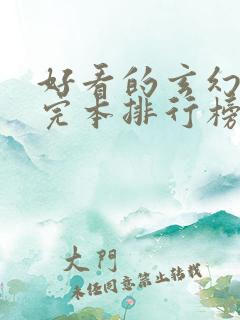 好看的玄幻
完本排行榜
大門
未经同意禁止转载